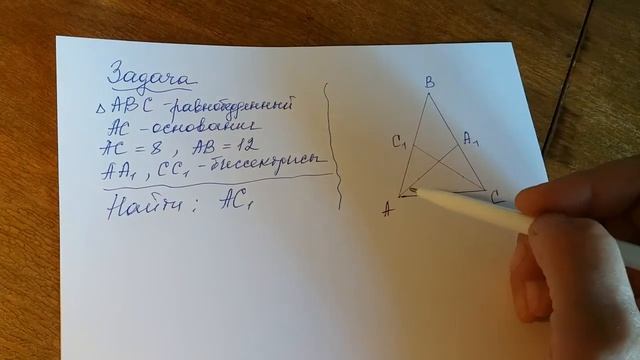 Задача
△ ABC - равнобедренный
AC - основание
AC = 8 , AB = 12
AA₁ , CC₁ - биссектрисы
Найти : AC₁
B
C₁
A₁
A
C